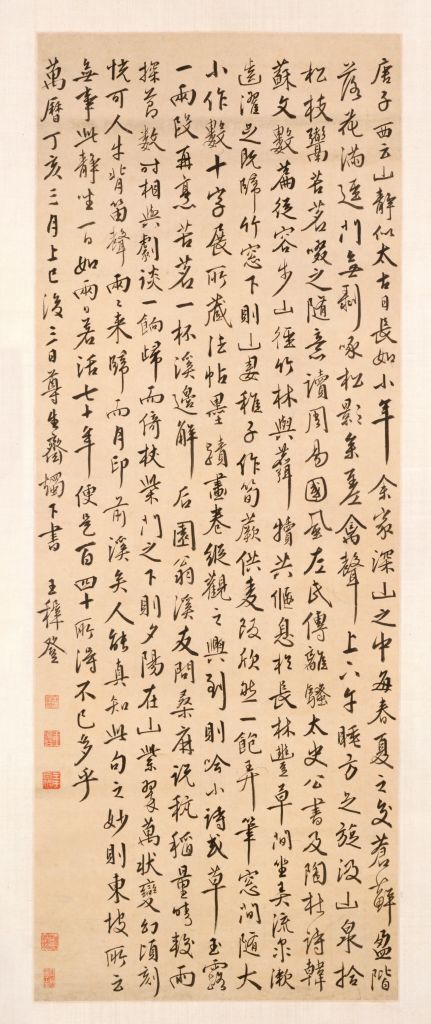 唐子西云山靜似太古日長如小年余家深山之中每春夏之交蒼蘚盈階
落花滿逕門無剥啄松影參差禽聲上下午睡方足旋汲山泉拾
松枝鬻苦茗啜之隨意讀周易國風左氏傳離騷太史公書及陶杜詩韓
蘇文數篇從容步山徑竹林與麛犢共偃息於長林豐草間坐弄流泉漱
齒濯足既歸竹窓下則山妻稚子作筍蕨供麥飯欣然一飽弄筆窓間隨大
小作數十字展所藏法帖墨蹟畫卷縱觀之興到則吟小詩或草玉露
一兩段再烹苦茗一杯溪邊解后園翁溪友問桑麻說秔稻量晴較雨
探節數時相與劇談一餉歸而倚杖柴門之下則夕陽在山紫翠萬狀變幻頃刻
恍可人牛背笛聲兩〻來歸而月印前溪矣人能真知此句之妙則東坡所云
無事此靜坐一日如兩日若活七十年便是百四十所得不已多乎
萬曆丁亥三月上巳後三日尊生齋燭下書 王穉登